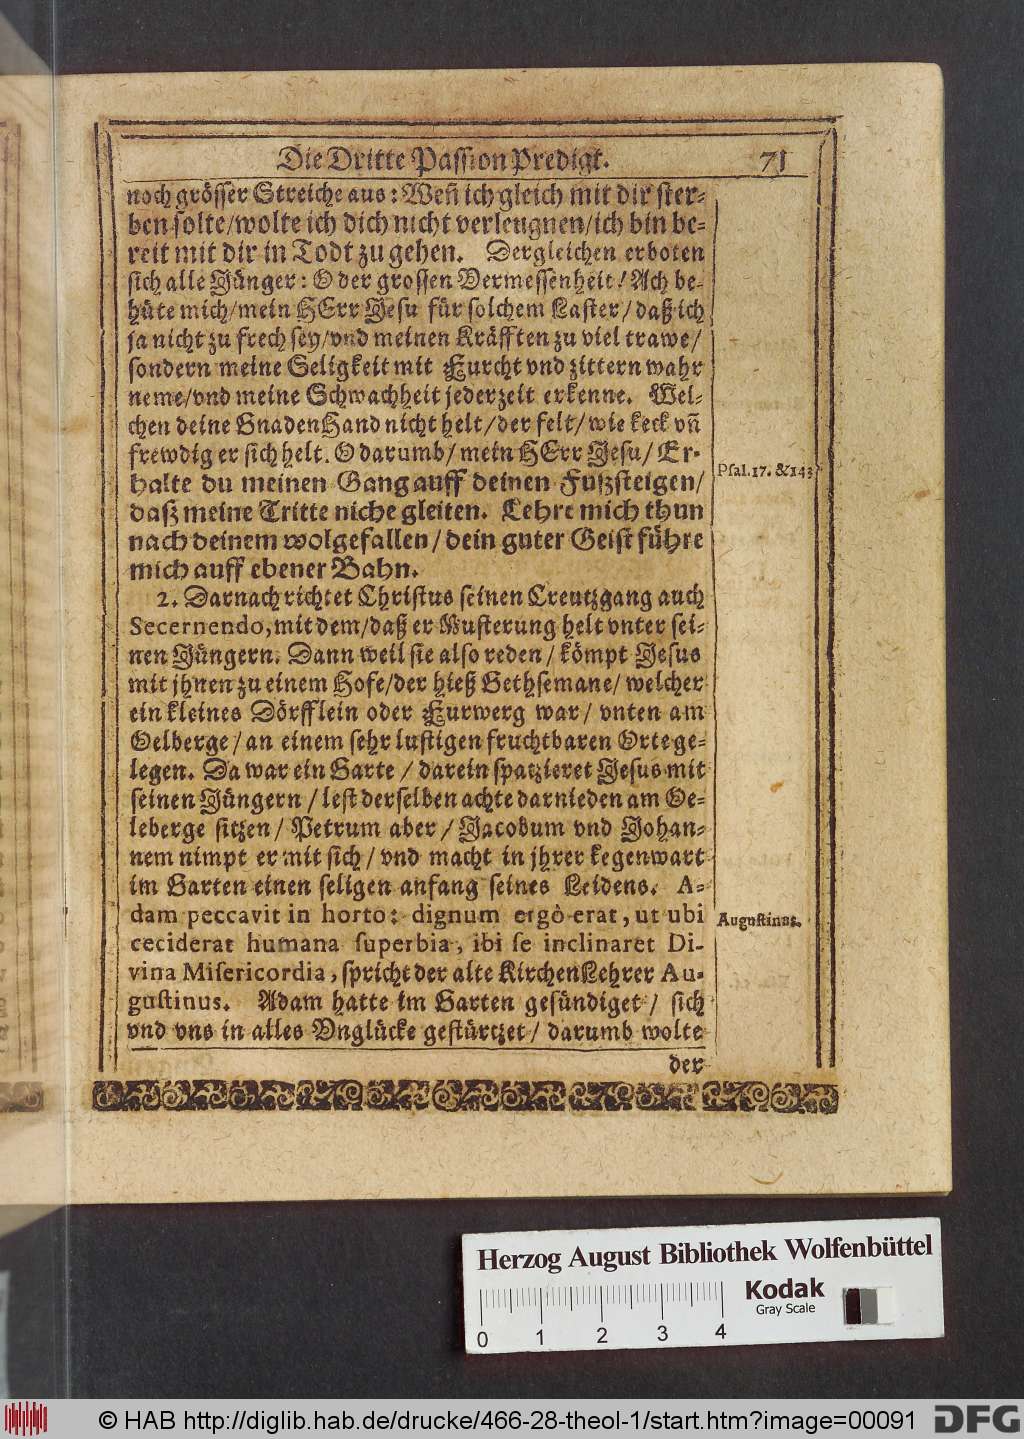 Die Dritte Passion Predigt. 71
noch grösser Streiche aus: Weñ ich gleich mit dir ster-
ben solte/wolte ich dich nicht verleugnen/ich bin be-
reit mit dir in Todt zu gehen. Dergleichen erboten
sich alle Jünger: O der grossen Vermessenheit! Ach be-
hüte mich/mein HErr Jesu für solchem Laster/daß ich
ja nicht zu frech sey/vnd meinen Kräfften zu viel trawe/
sondern meine Seligkeit mit Furcht vnd zittern wahr
neme/vnd meine Schwachheit jederzeit erkenne. Wel-
chen deine GnadenHand nicht helt/der felt/wie keck vñ
frewdig er sich helt. O darumb/mein HErr Jesu/Er-
halte du meinen Gang auff deinen Fußsteigen/
daß meine Tritte niche gleiten. Lehre mich thun
nach deinem wolgefallen/dein guter Geist führe
mich auff ebener Bahn.
Psal. 17. & 143
2. Darnach richtet Christus seinen Creutzgang auch
Secernendo, mit dem/daß er Musterung helt vnter sei-
nen Jüngern. Dann weil sie also reden/kömpt Jesus
mit jhnen zu einem Hofe/der hieß Gethsemane/welcher
ein kleines Dörfflein oder Furwerg war/vnten am
Oelberge/an einem sehr lustigen fruchtbaren Orte ge-
legen. Da war ein Garte/darein spatzieret Jesus mit
seinen Jüngern/lest derselben achte darnieden am Oe-
leberge sitzen/Petrum aber/Jacobum vnd Johan-
nem nimpt er mit sich/vnd macht in jhrer kegenwart
im Garten einen seligen anfang seines Leidens. A-
dam peccavit in horto: dignum ergò erat, ut ubi
ceciderat humana superbia, ibi se inclinaret Di-
vina Misericordia, spricht der alte KirchenLehrer Au-
gustinus. Adam hatte im Garten gesündiget/sich
vnd vns in alles Vnglücke gestürtzet/darumb wolte
Augustinus.
der
Herzog August Bibliothek Wolfenbüttel
Kodak
Gray Scale
0 1 2 3 4
© HAB http://diglib.hab.de/drucke/466-28-theol-1/start.htm?image=00091
DFG